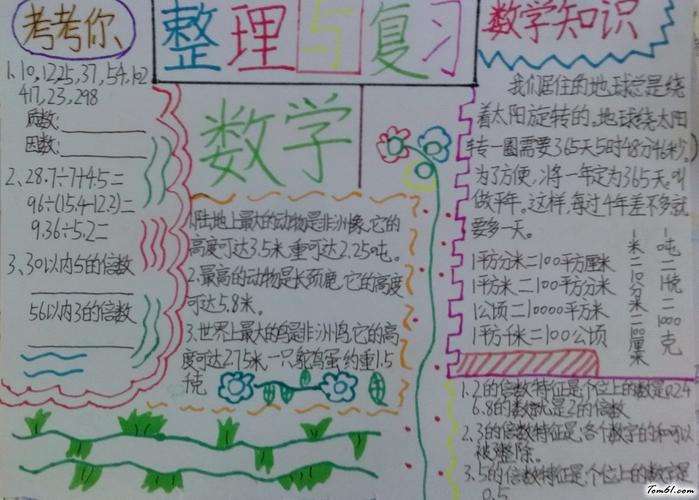 考考你
1、10,12,25,37,54,102
417,23,298
质数:
因数:
2、28.7÷7+4.5=
96÷(15.4-12.2)=
9.36÷5.2=
3、30以内5的倍数
56以内3的倍数
整理与复习
数学
1.陆地上最大的动物是非洲象,它的
高度可达3.5米,重可达2.25吨。
2.最高的动物是长颈鹿,它的高度
可达5.8米。
3.世界上最大的鸟是非洲鸟,它的高
度可达2.75米,一只鸵鸟蛋约重1.5
千克
数学知识
我们居住的地球总是绕
着太阳旋转的。地球绕太阳
转一圈需要365天5时48分46秒。
为了方便,将一年定为365天。叫
做平年。这样,每过4年差不多就
要多一天。
1平方分米=100平方厘米
1平方米=100平方分米
1公顷=10000平方米
1平方千米=100公顷
1米=10分米=100厘米
1吨=1000千克
1.2的倍数特征是:个位上的数是0.2.4
6.8的数就是2的倍数
2.3的倍数特征是,各个数字的和可以
被整除。
3.5的倍数特征是:个位上的数字是
0.5
Tom61.com